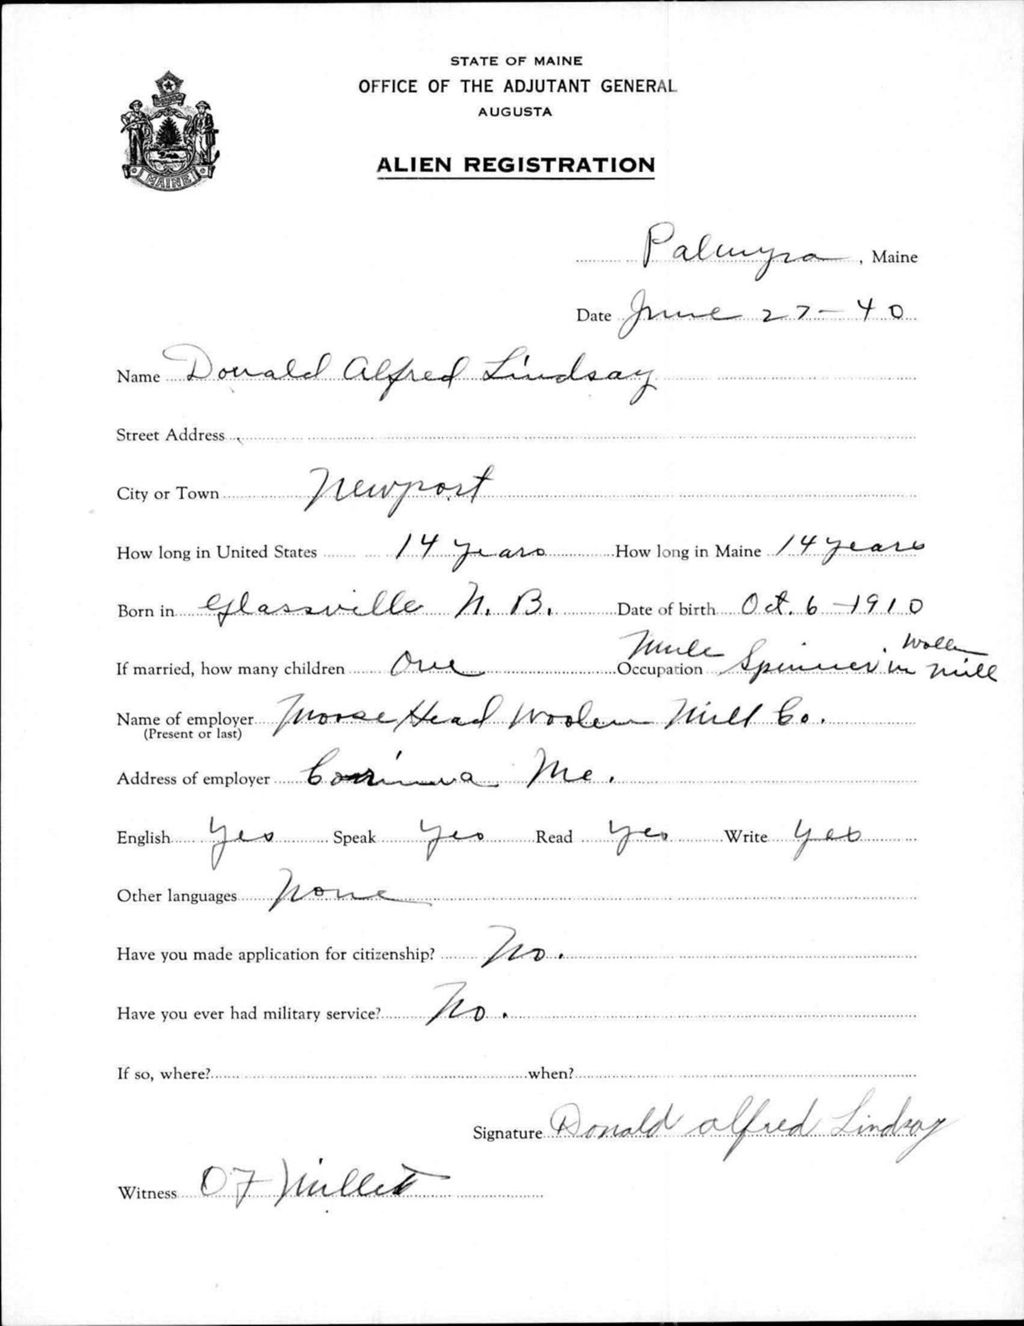 STATE OF MAINE
OFFICE OF THE ADJUTANT GENERAL
AUGUSTA
ALIEN REGISTRATION
MAINE
Palmyra, Maine
Date June 27-40
Name Donald Alfred Lindsay
Street Address
City or Town Newport
How long in United States 14 years How long in Maine 14 years
Born in Glassville N. B. Date of birth Oct. 6-1910
If married, how many children One Occupation Mule Spinner in Wollen Mill
Name of employer Moose Head Woolen Mill Co.
(Present or last)
Address of employer Corinna Me.
English Yes Speak Yes Read Yes Write Yes
Other languages None
Have you made application for citizenship? No.
Have you ever had military service? No.
If so, where? when?
Signature Donald Alfred Lindsay
Witness O F Millett